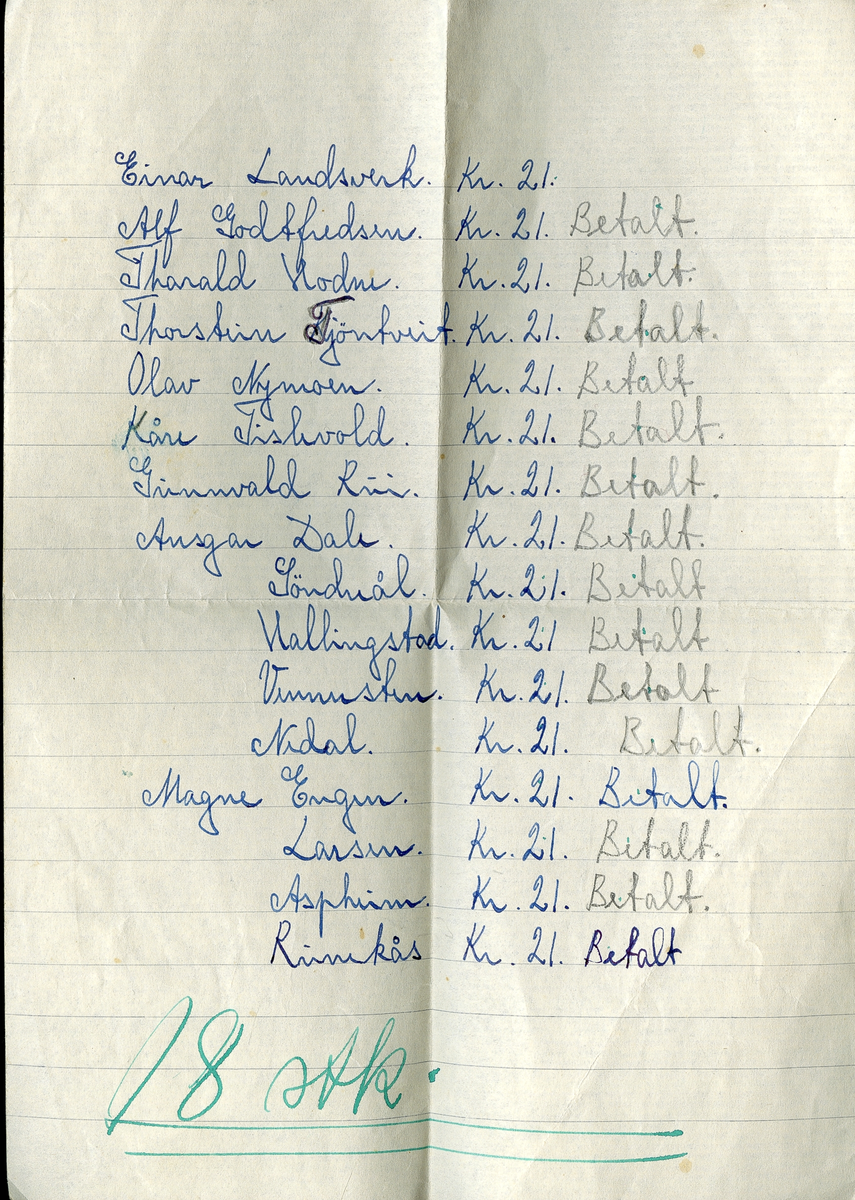 Einar Landsverk. Kr. 21.
Alf Godtfredsen. Kr. 21. Betalt.
Tharald Hodne. Kr. 21. Betalt.
Thorstein Tjöntveit. Kr. 21. Betalt.
Olav Nymoen. Kr. 21. Betalt
Kåre Tishvold. Kr. 21. Betalt.
Gunnvald Rui. Kr. 21. Betalt.
Ansgar Dale. Kr. 21. Betalt.
Kr. 21. Betalt
Hallingstad. Kr. 21 Betalt
Kr. 21. Betalt
Nedal. Kr. 21. Betalt.
Magne Engen. Kr. 21. Betalt.
Larsen. Kr. 21. Betalt.
Aspheim. Kr. 21. Betalt.
Kr. 21. Betalt
18 stk.